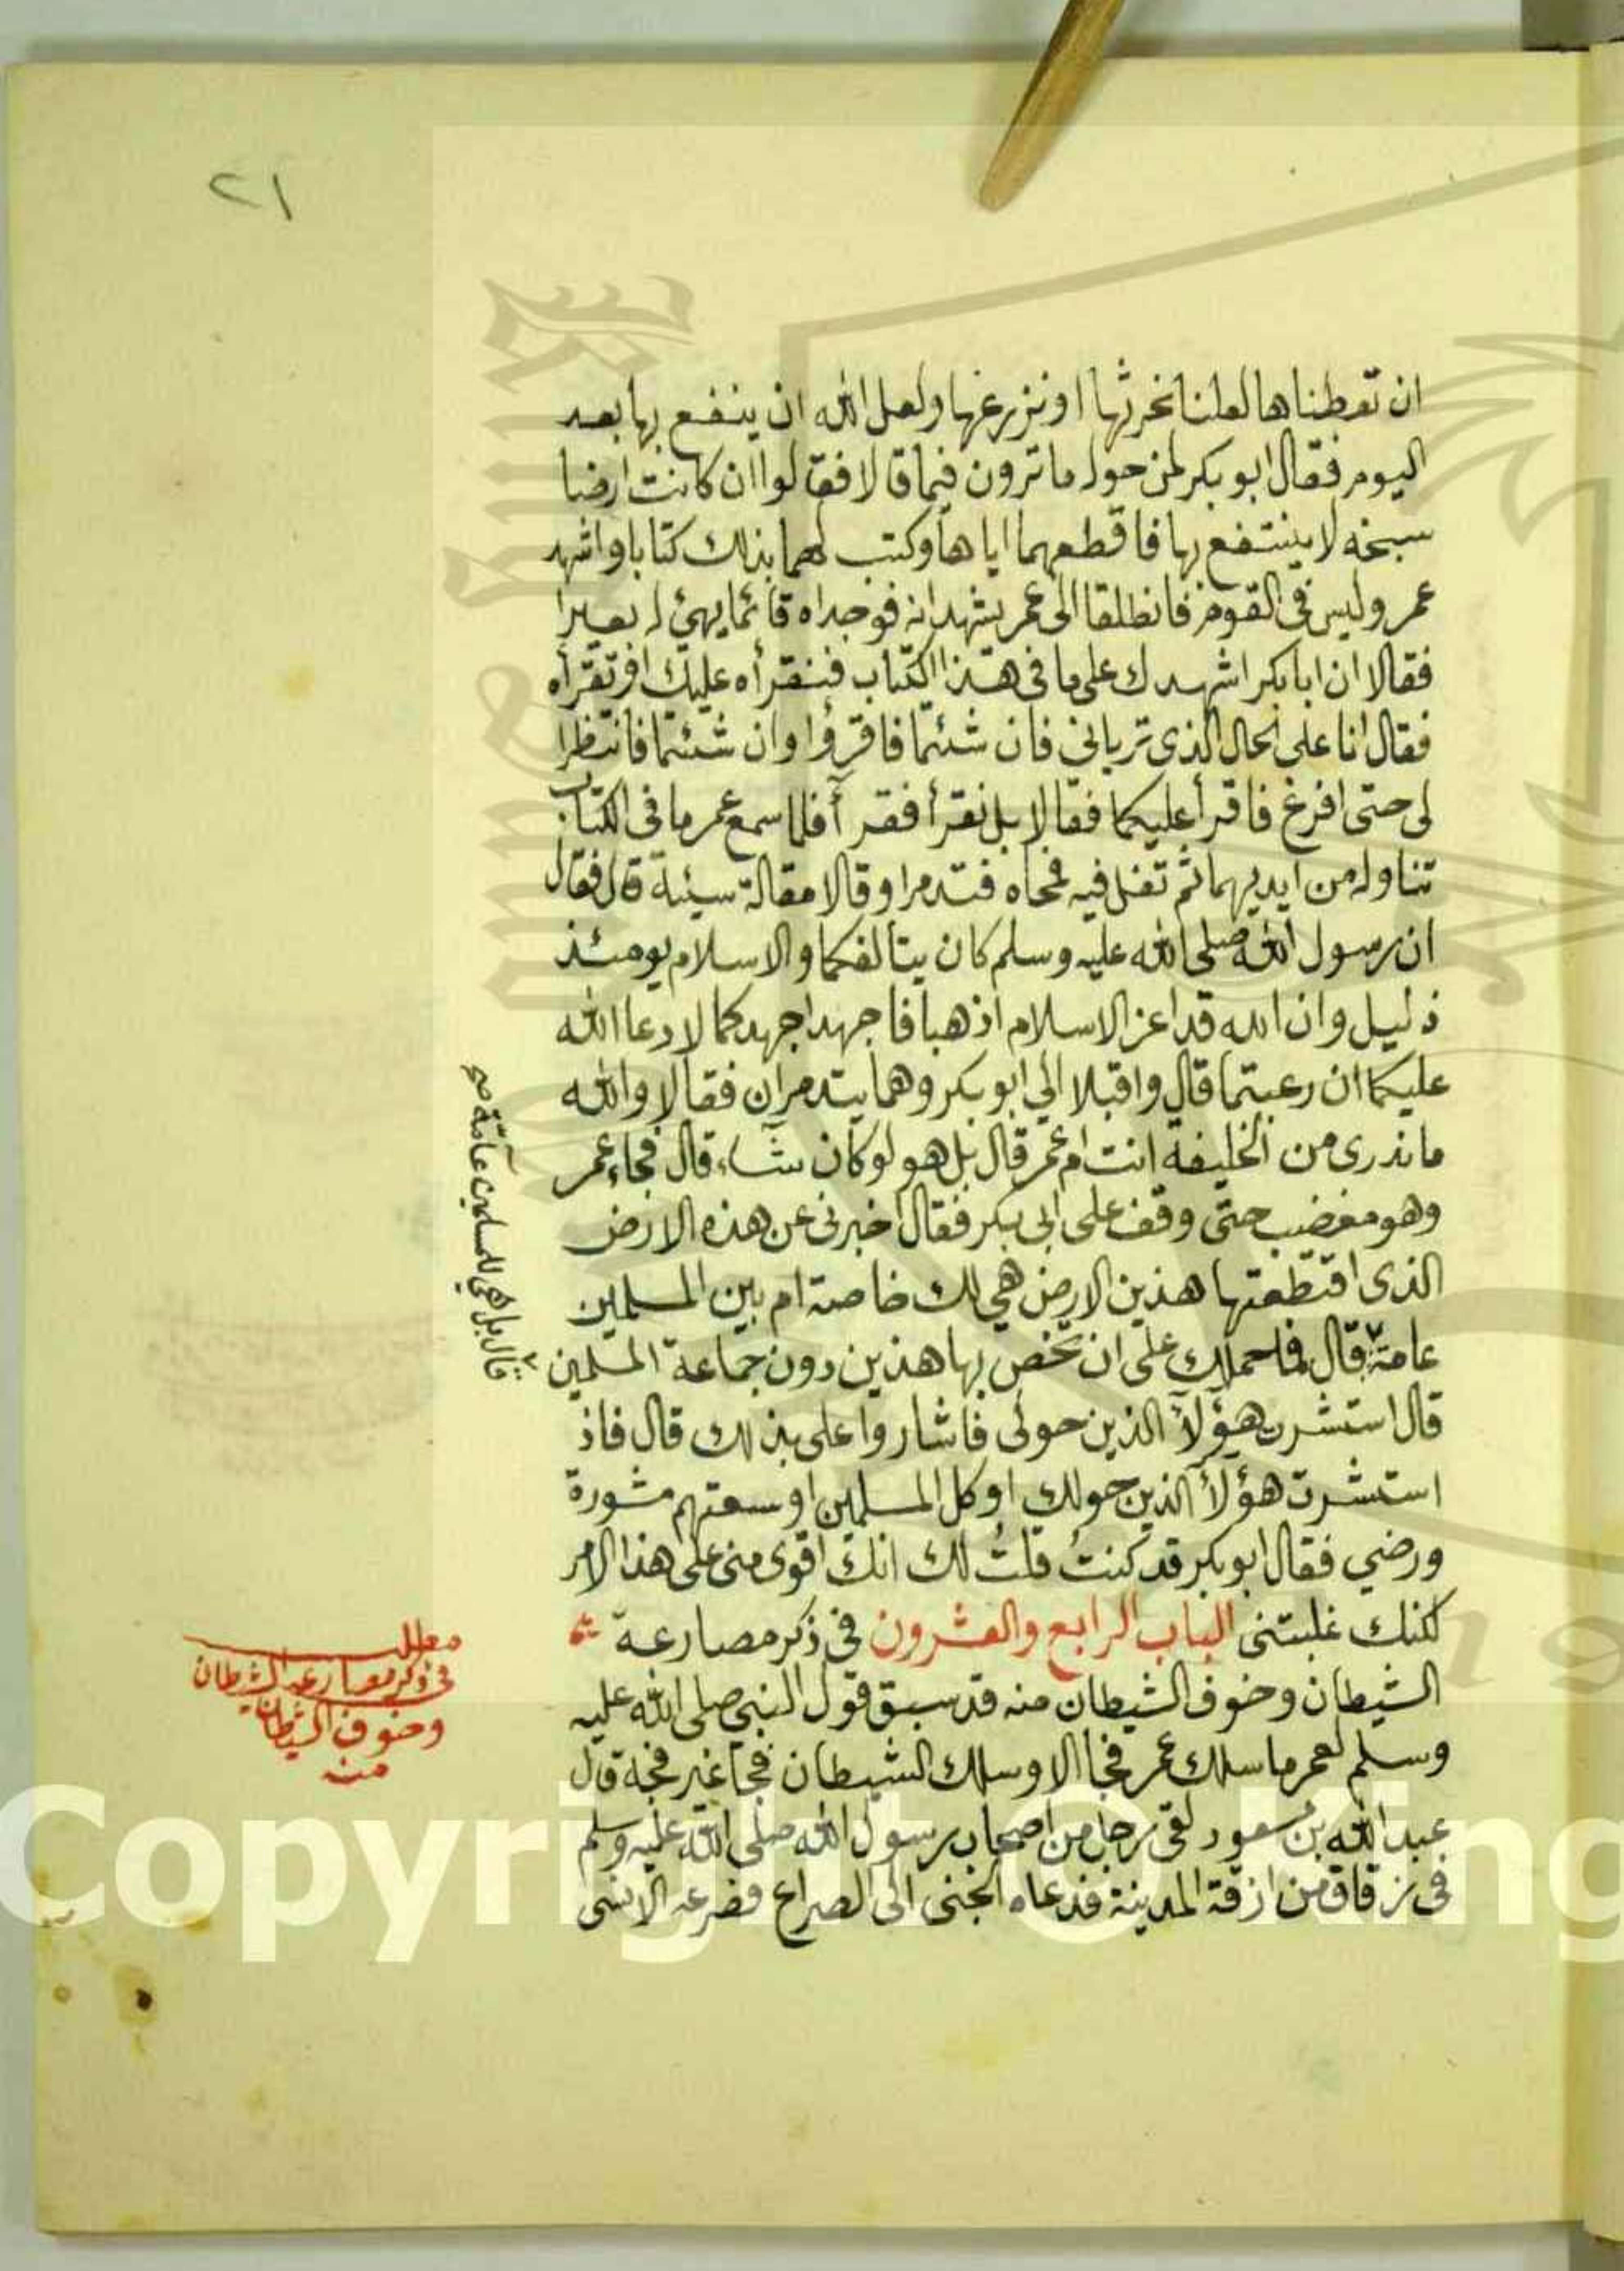 ٢١
ان تعطناها لعلنا نحرثها او نزرعها ولعل الله ان ينفع بها بعد
اليوم فقال ابو بكر لمن حوله ما ترون فيما قالا فقالوا ان كانت ارضا
سبخه لا ينتفع بها فاقطعهما اياها وكتب لهما بذلك كتابا واشهد
عمر وليس في القوم فانطلقا الى عمر يشهدانه فوجداه قائما يهيئ له بعيرا
فقالا ان ابا بكر اشهدك على ما في هذا الكتاب فنقرأه عليك او تقرأه
فقال انا على الحال الذي ترياني فان شئتما فاقرؤا وان شئتما فانتظرا
لي حتى افرغ فاقرأ عليكما فقالا بل نقرأ فقرآ فلما سمع عمر ما في الكتاب
تناوله من ايديهما ثم تفل فيه فمحاه فتدمرا وقالا مقالة سيئة قال فقال
ان رسول الله صلى الله عليه وسلم كان يتالفكما والاسلام يومئذ
ذليل وان الله قد اعز الاسلام اذهبا فاجهدا جهدكما لا رعا الله
عليكما ان رعيتما قال واقبلا الى ابو بكر وهما يتدمران فقالا والله
ما ندري من الخليفة انت ام عمر قال بل هو لو كان شاء قال فجاء عمر
وهو مغضب حتى وقف على ابي بكر فقال اخبرني عن هذه الارض
الذي اقتطعتها هذين الارض هي لك خاصة ام بين المسلمين
عامة قال فما حملك على ان تخص بها هذين دون جماعة المسلمين
قال بل هي للمسلمين عامة صح
قال استشرت هؤلآ الذين حولي فاشاروا على بذلك قال فاذ
استشرت هؤلآ الذين حولك اوكل المسلمين اوسعتهم مشورة
ورضي فقال ابو بكر قد كنتُ قلتُ لك انك اقوى مني على هذا الامر
لكنك غلبتني الباب الرابع والعشرون في ذكر مصارعة
الشيطان وخوف الشيطان منه قد سبق قول النبي صلى الله عليه
وسلم لعمر ما سلك عمر فجا الا وسلك الشيطان فجا غير فجة قال
عبد الله بن مسعود لقى رجل من اصحاب رسول الله صلى الله عليه وسلم
في زقاق من ازقة المدينة فدعاه الجني الى الصراع فصرعه الانسي
مطلب
في ذكر مصارعه الشيطان
وخوف الشيطان
منه
Copyright © King